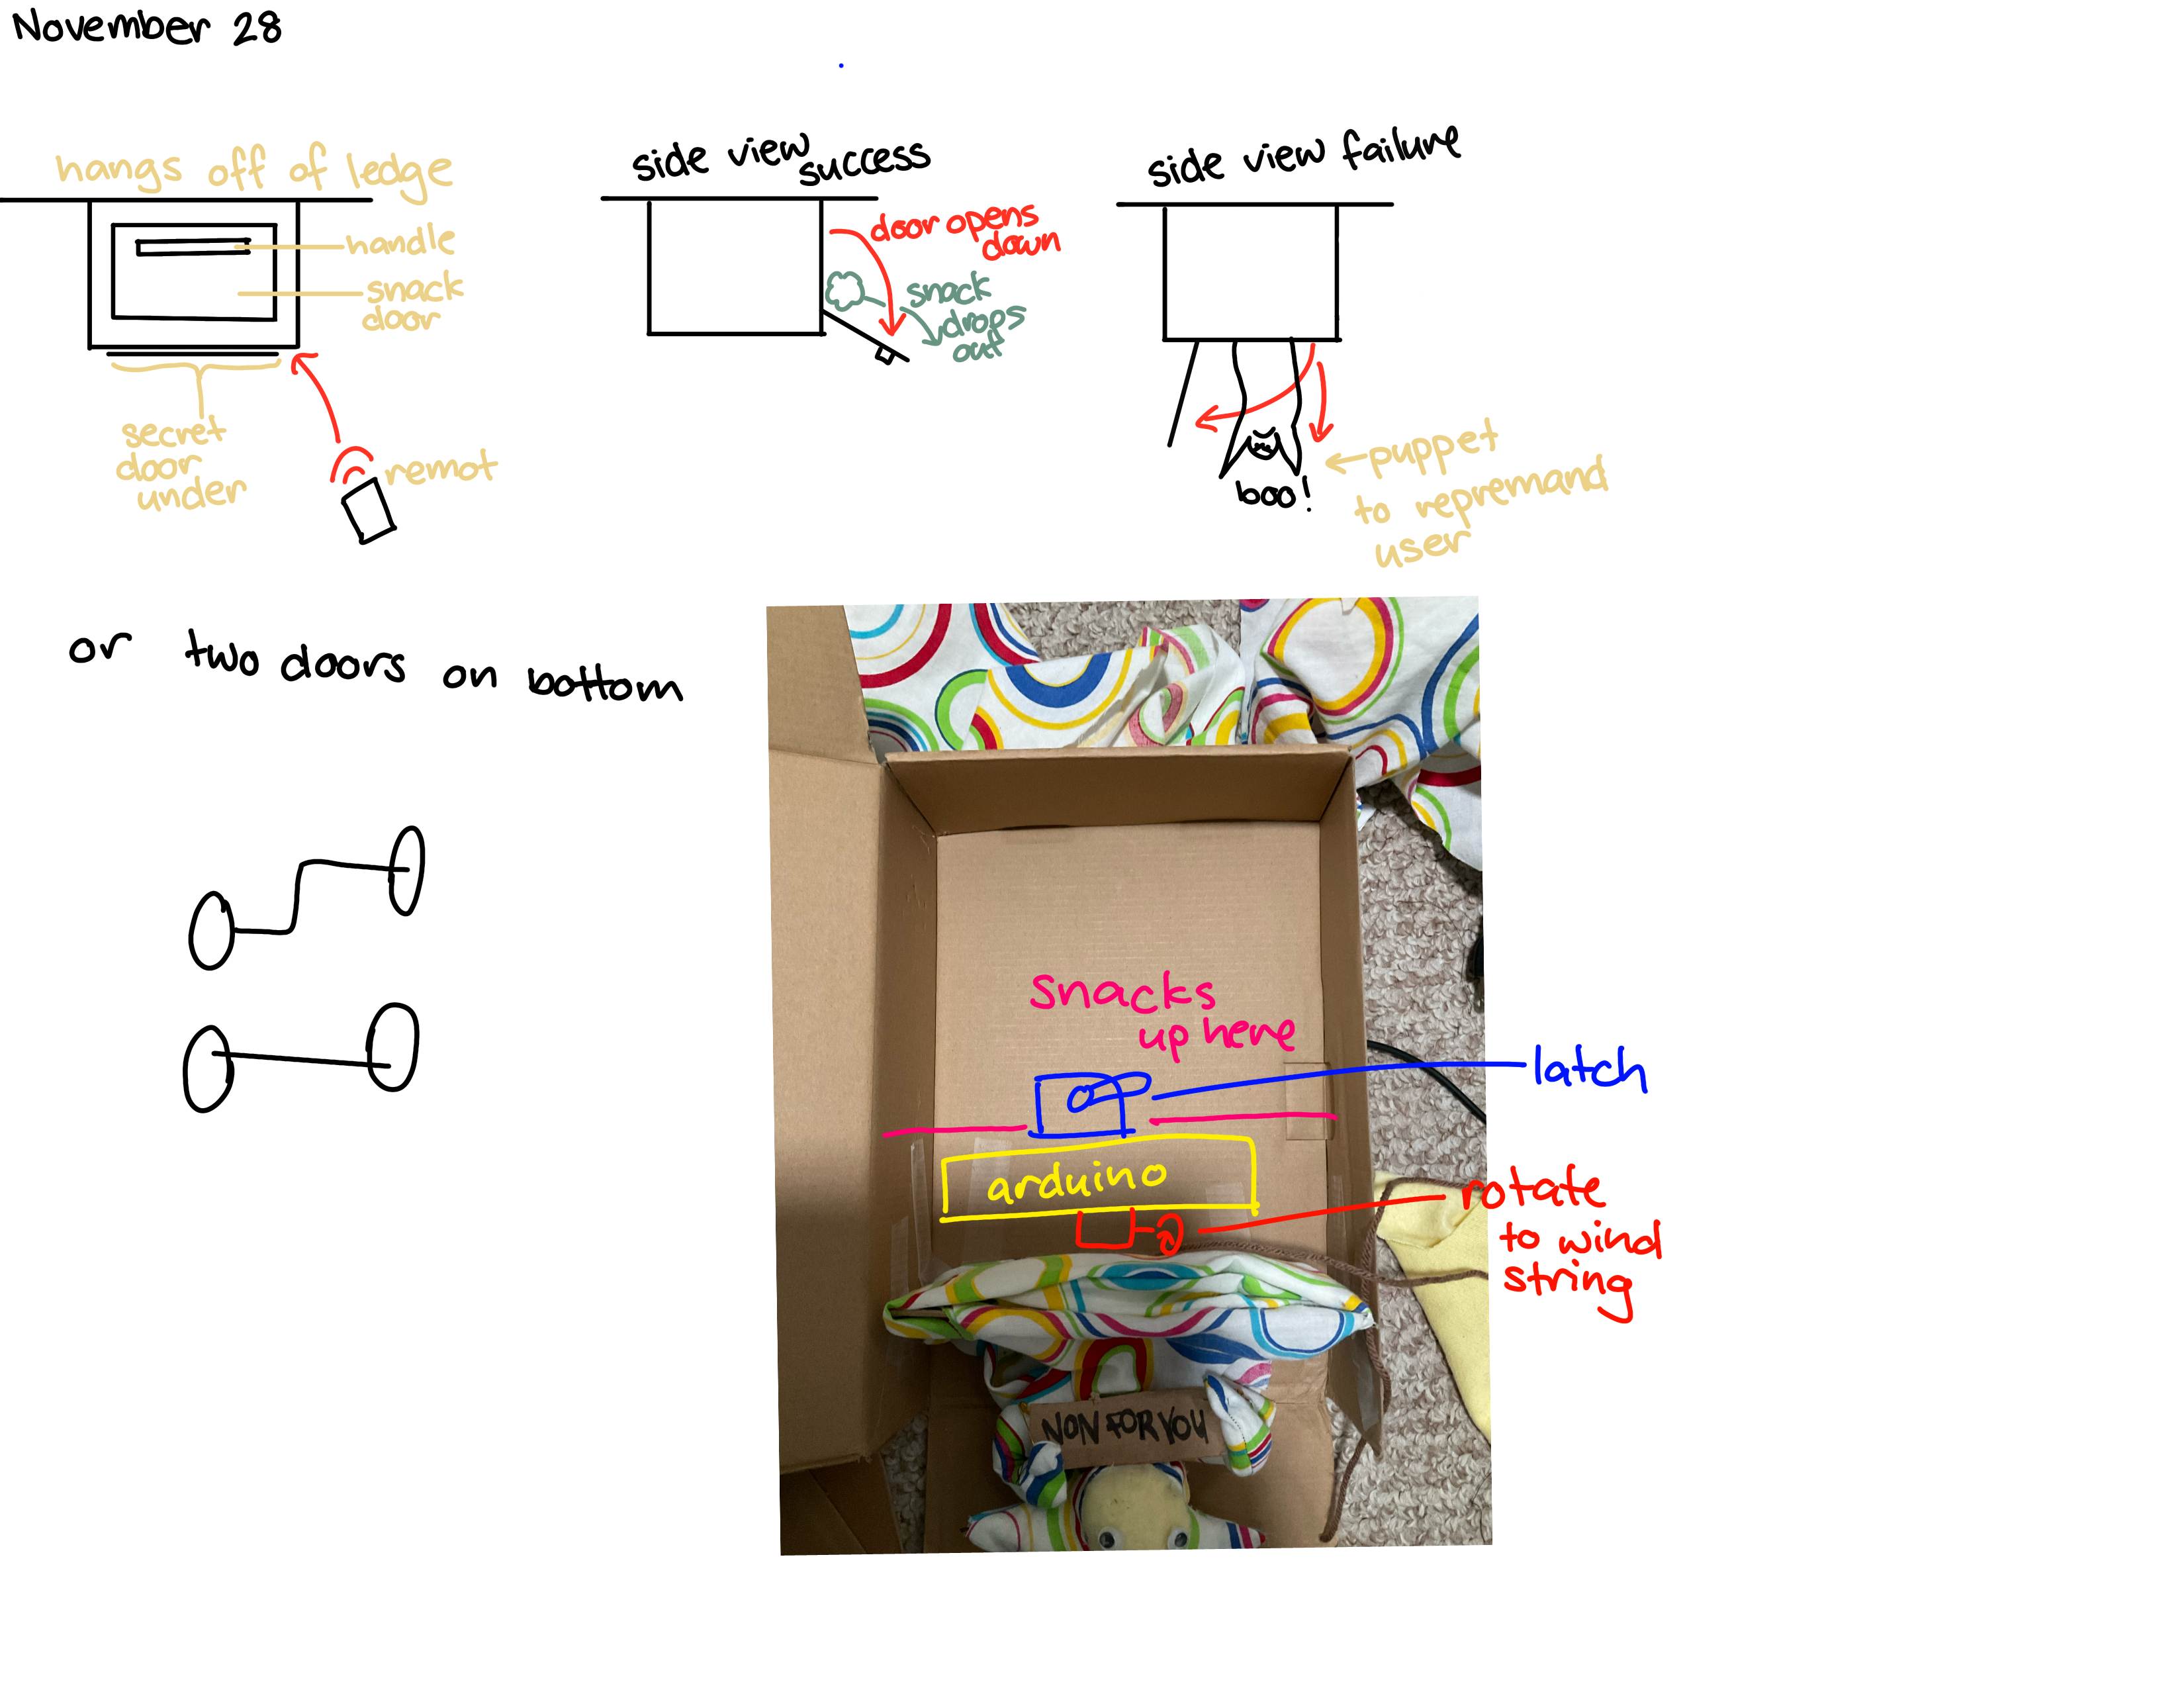 November 28
hangs off of ledge
handle
snack
door
secret
door
under
remot
side view
success
door opens
down
snack
drops
out
side view failure
boo!
puppet
to repremand
user
or two doors on bottom
snacks
up here
latch
arduino
rotate
to wind
string
NON FOR YOU